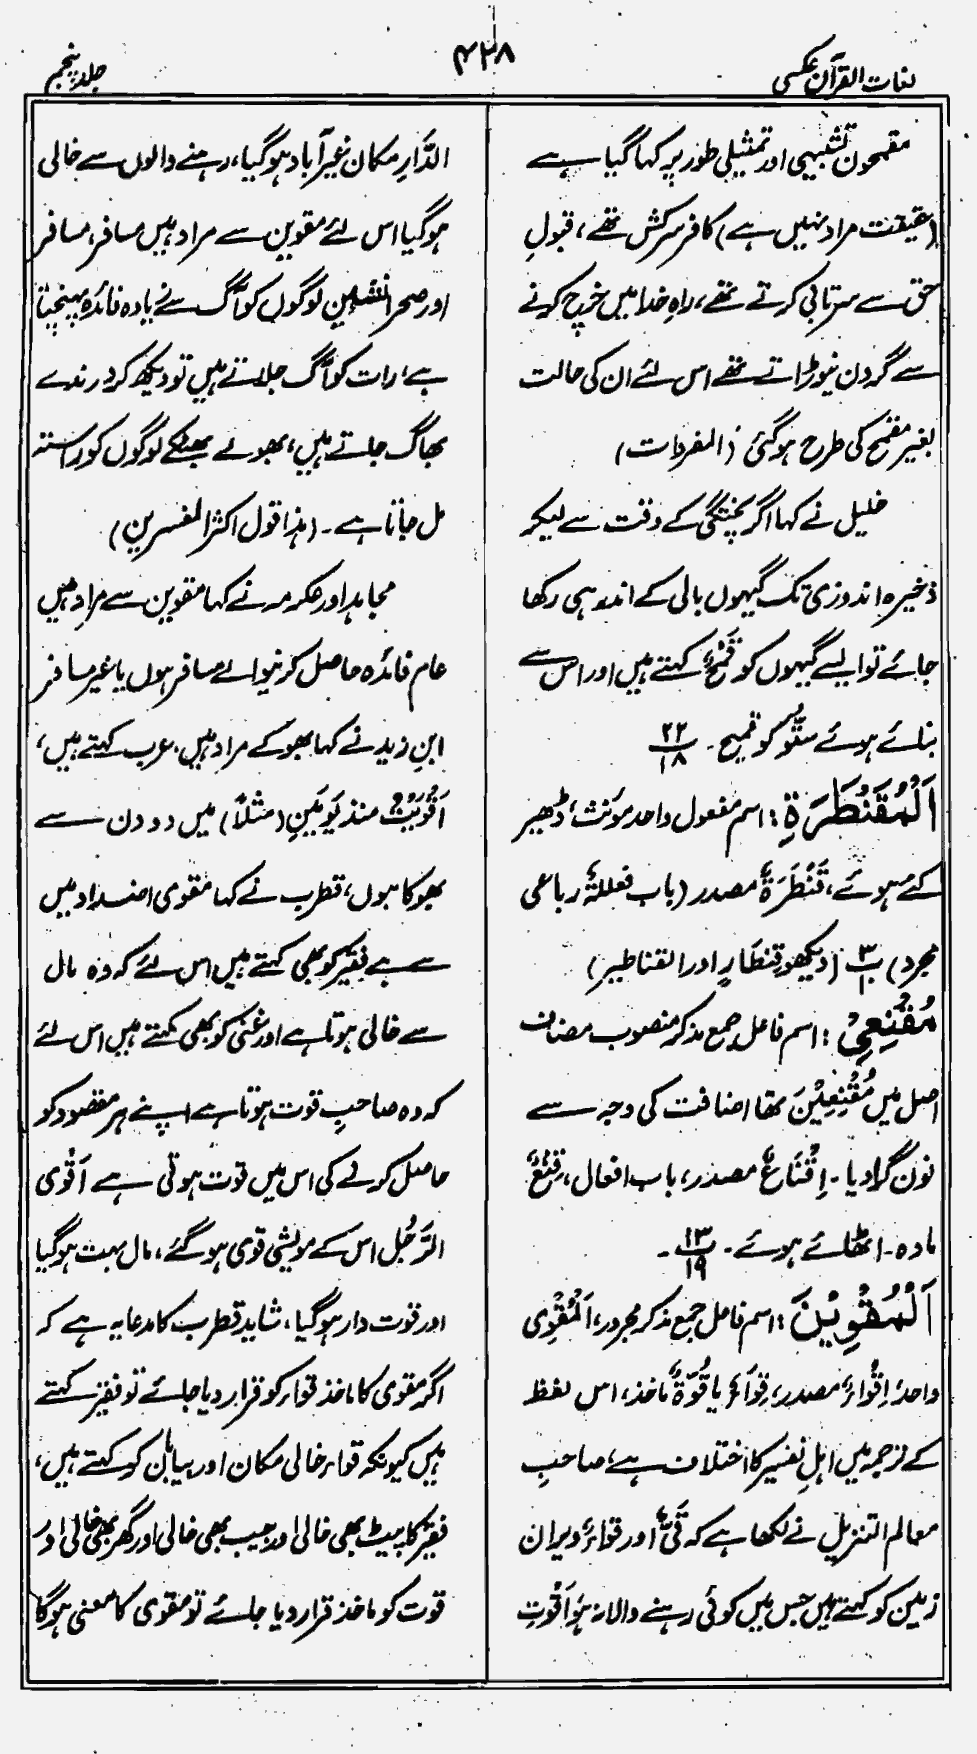 لغات القرآن عکسی
۴۲۸
جلد پنجم
مقمحون تشبیہی اور تمثیلی طور پر کہا گیا ہے
(حقیقت مراد نہیں ہے) کافر سرکش تھے، قبولِ
حق سے سرتابی کرتے تھے، راہِ خدا میں خرچ کرنے
سے گردن نیوڑاتے تھے اس لئے ان کی حالت
بغیر مقمح کی طرح ہوگئی (المفردات)
خلیل نے کہا اگر پختگی کے وقت سے لیکر
ذخیرہ اندوزی تک گیہوں بالی کے اندر ہی رکھا
جائے تو ایسے گیہوں کو قَمْحٌ کہتے ہیں اور اس سے
بنائے ہوئے ستّو کو قمیح۔ ۲۲/۱۸
اَلْمُقَنْطَرَةِ: اسم مفعول واحد مؤنث، ڈھیر
کئے ہوئے، قَنْطَرَةٌ مصدر (باب فعللۃٌ رباعی
مجرد) پ۳/۱۰ (دیکھو قنطَارٍ اور القناطیرِ)
مُقْنِعِیْ: اسم فاعل جمع مذکر منصوب مضاف
اصل میں مُقْنِعِیْنَ تھا اضافت کی وجہ سے
نون گرادیا۔ اِقْنَاعٌ مصدر، باب افعال، قنعٌ
مادہ۔ اٹھائے ہوئے۔ پ۱۳/۱۹۔
اَلْمُقْوِیْنَ: اسم فاعل جمع مذکر مجرور، اَلْمُقْوِی
واحد، اِقْوَاءٌ مصدر، قِوَاءٌ یا قُوَّةٌ ماخذ، اس لفظ
کے ترجمہ میں اہلِ تفسیر کا اختلاف ہے، صاحبِ
معالم التنزیل نے لکھا ہے کہ قَیٌّ اور قواءٌ ویران
زمین کو کہتے ہیں جس میں کوئی رہنے والا نہ ہو اَقْوتِ
الدَّارِ مکان غیر آباد ہوگیا، رہنے والوں سے خالی
ہوگیا اس لئے مقوین سے مراد ہیں مسافر، مسافر
اور صحرا نشین لوگوں کو آگ سے زیادہ فائدہ پہنچتا
ہے، رات کو آگ جلاتے ہیں تو دیکھ کر درندے
بھاگ جاتے ہیں، بھولے بھٹکے لوگوں کو راستہ
مل جاتا ہے۔ (ہذا قول اکثر المفسرین)
مجاہد اور عکرمہ نے کہا مقوین سے مراد ہیں
عام فائدہ حاصل کرنیوالے مسافر ہوں یا غیر مسافر
ابن زید نے کہا بھوکے مراد ہیں، عرب کہتے ہیں،
اَقْوَیْتُ منذ یَومَینِ (مثلاً) میں دو دن سے
بھوکا ہوں، قطرب نے کہا مقوی اضداد میں
سے ہے فقیر کو بھی کہتے ہیں اس لئے کہ وہ مال
سے خالی ہوتا ہے اور غنی کو بھی کہتے ہیں اس لئے
کہ وہ صاحبِ قوت ہوتا ہے اپنے ہر مقصود کو
حاصل کرنے کی اس میں قوت ہوتی ہے اَقْوی
الرَّجُل اس کے مویشی قوی ہوگئے، مال بہت ہوگیا
اور قوت دار ہوگیا، شاید قطرب کا مدعا یہ ہے کہ
اگر مقوی کا ماخذ قواء کو قرار دیا جائے تو فقیر کہتے
ہیں کیونکہ قواء خالی مکان اور بیابان کو کہتے ہیں،
فقیر کا پیٹ بھی خالی اور جیب بھی خالی اور گھر بھی خالی اور
قوت کو ماخذ قرار دیا جائے تو مقوی کا معنی ہوگا